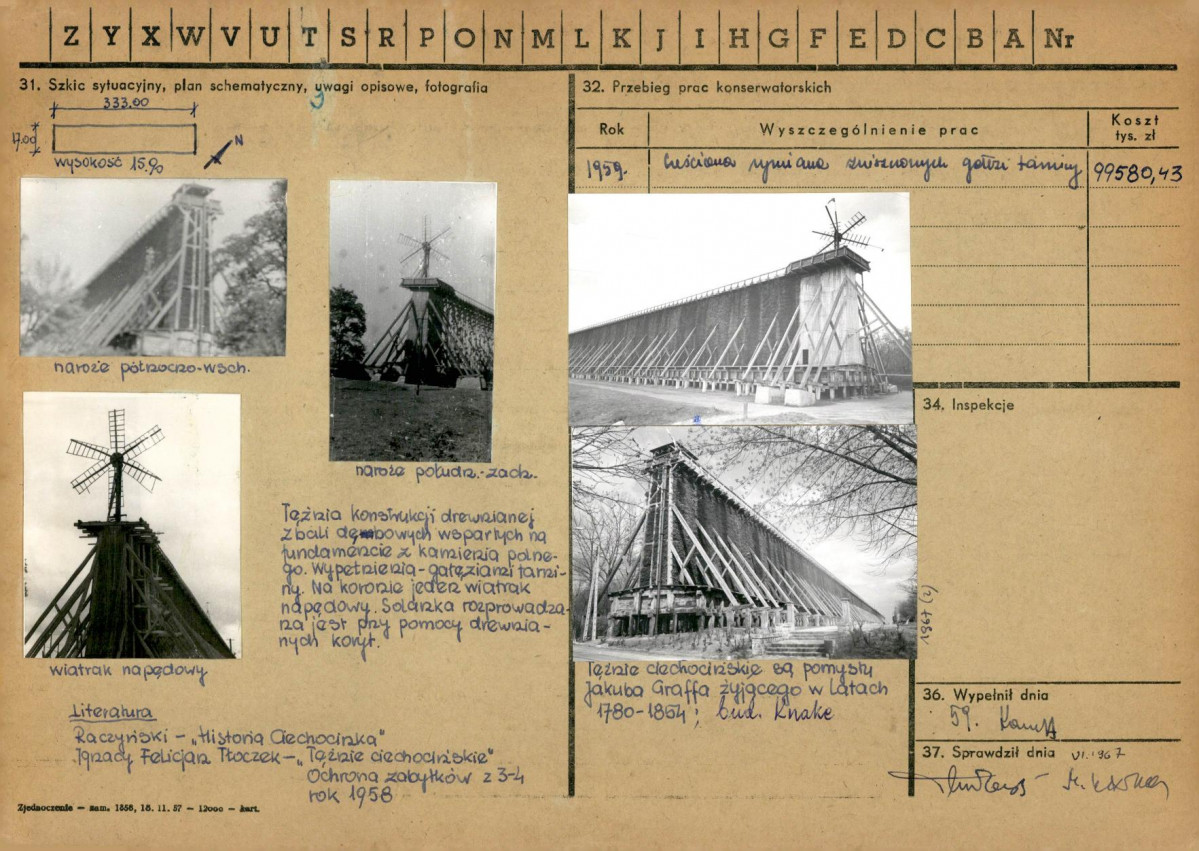 Z Y X W V U T S R P O N M L K J I H G F E D C B A Nr
31. Szkic sytuacyjny, plan schematyczny, uwagi opisowe, fotografia
333.00
17.00
wysokość 15.90
N
naroże północzo-wsch.
naroże połudn.-zach.
wiatrak napędowy
Tężnia konstrukcji drewnianej
z bali dębowych wspartych na
fundamencie z kamienia polne-
go. Wypełnienia - gałęziami tarni-
ny. Na koronie jeden wiatrak
napędowy. Solanka rozprowadza-
na jest przy pomocy drewnia-
nych koryt.
Literatura
Raczyński - „Historia Ciechocinka"
Ignacy Felicjan Tłoczek - „Tężnie ciechocińskie"
Ochrona zabytków z 3-4
rok 1958
Zjednoczenie — zam. 1356, 18. 11. 57 — 12000 — kart.
32. Przebieg prac konserwatorskich
Rok
Wyszczególnienie prac
Koszt
tys. zł
1959.
wymiana zniszczonych gałęzi tarniny
99580,43
1967 (2)
Tężnie ciechocińskie są pomysłu
Jakuba Graffa żyjącego w latach
1780-1854; bud. Knake
34. Inspekcje
36. Wypełnił dnia
59.
37. Sprawdził dnia
VI. 1967